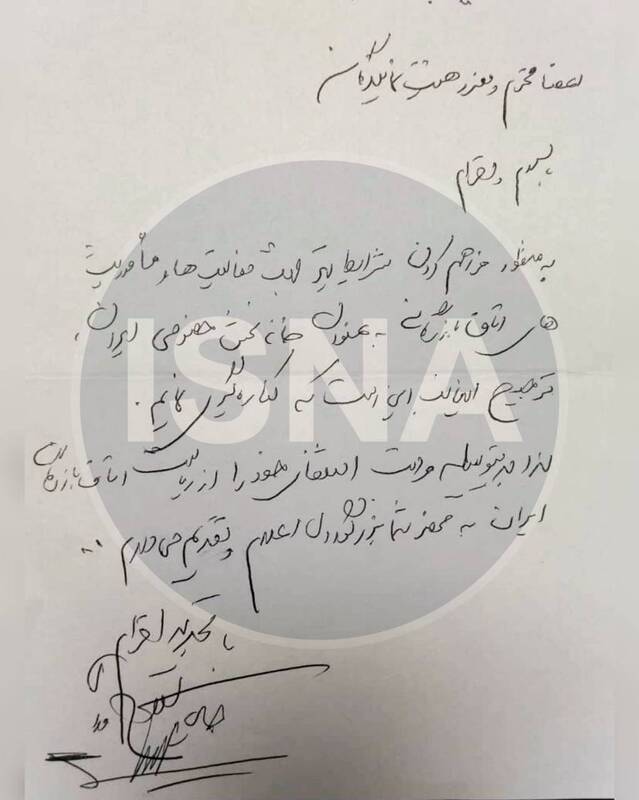 اعضا محترم و معزز هیئت نمایندگان
باسلام و احترام
به منظور فراهم کردن شرایط بهتر جهت فعالیت ها و مأموریت
های اتاق بازرگانی به عنوان خانه بخش خصوصی ایران،
ترجیح اینجانب این است که کناره گیری نمایم.
لذا بدینوسیله مراتب استعفای خود را از ریاست اتاق بازرگانی
ایران به محضر شما بزرگواران اعلام و تقدیم می دارم ..
با تجدید احترام
ISNA